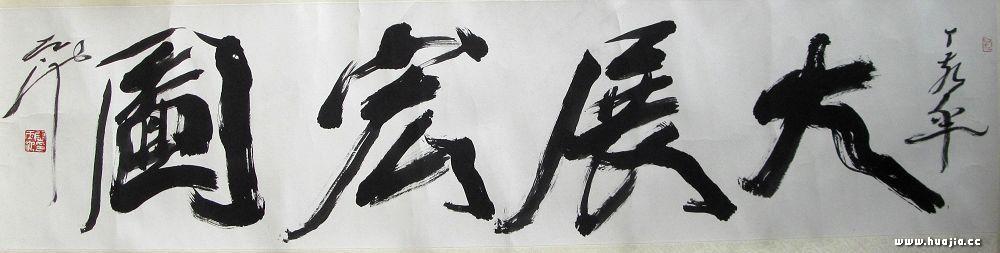 丁亥年
大展宏圖
www.huajia.cc